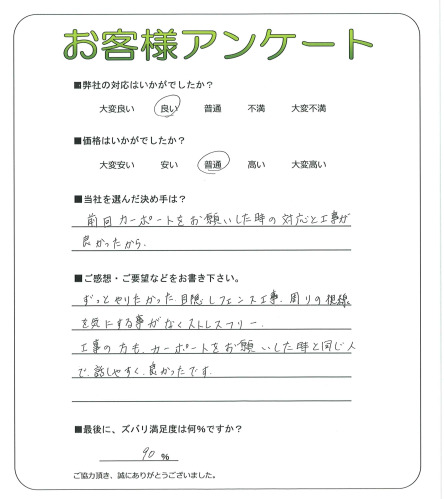 お客様アンケート
■弊社の対応はいかがでしたか？
大変良い 良い 普通 不満 大変不満
■価格はいかがでしたか？
大変安い 安い 普通 高い 大変高い
■当社を選んだ決め手は？
前回カーポートをお願いした時の対応と工事が
良かったから.
■ご感想・ご要望などをお書き下さい。
ずっとやりたかった目隠しフェンス工事.周りの視線
を気にする事がなくストレスフリー.
工事の方も.カーポートをお願いした時と同じ人
で.話しやすく.良かったです.
■最後に、ズバリ満足度は何％ですか？
90 %
ご協力頂き、誠にありがとうございました。